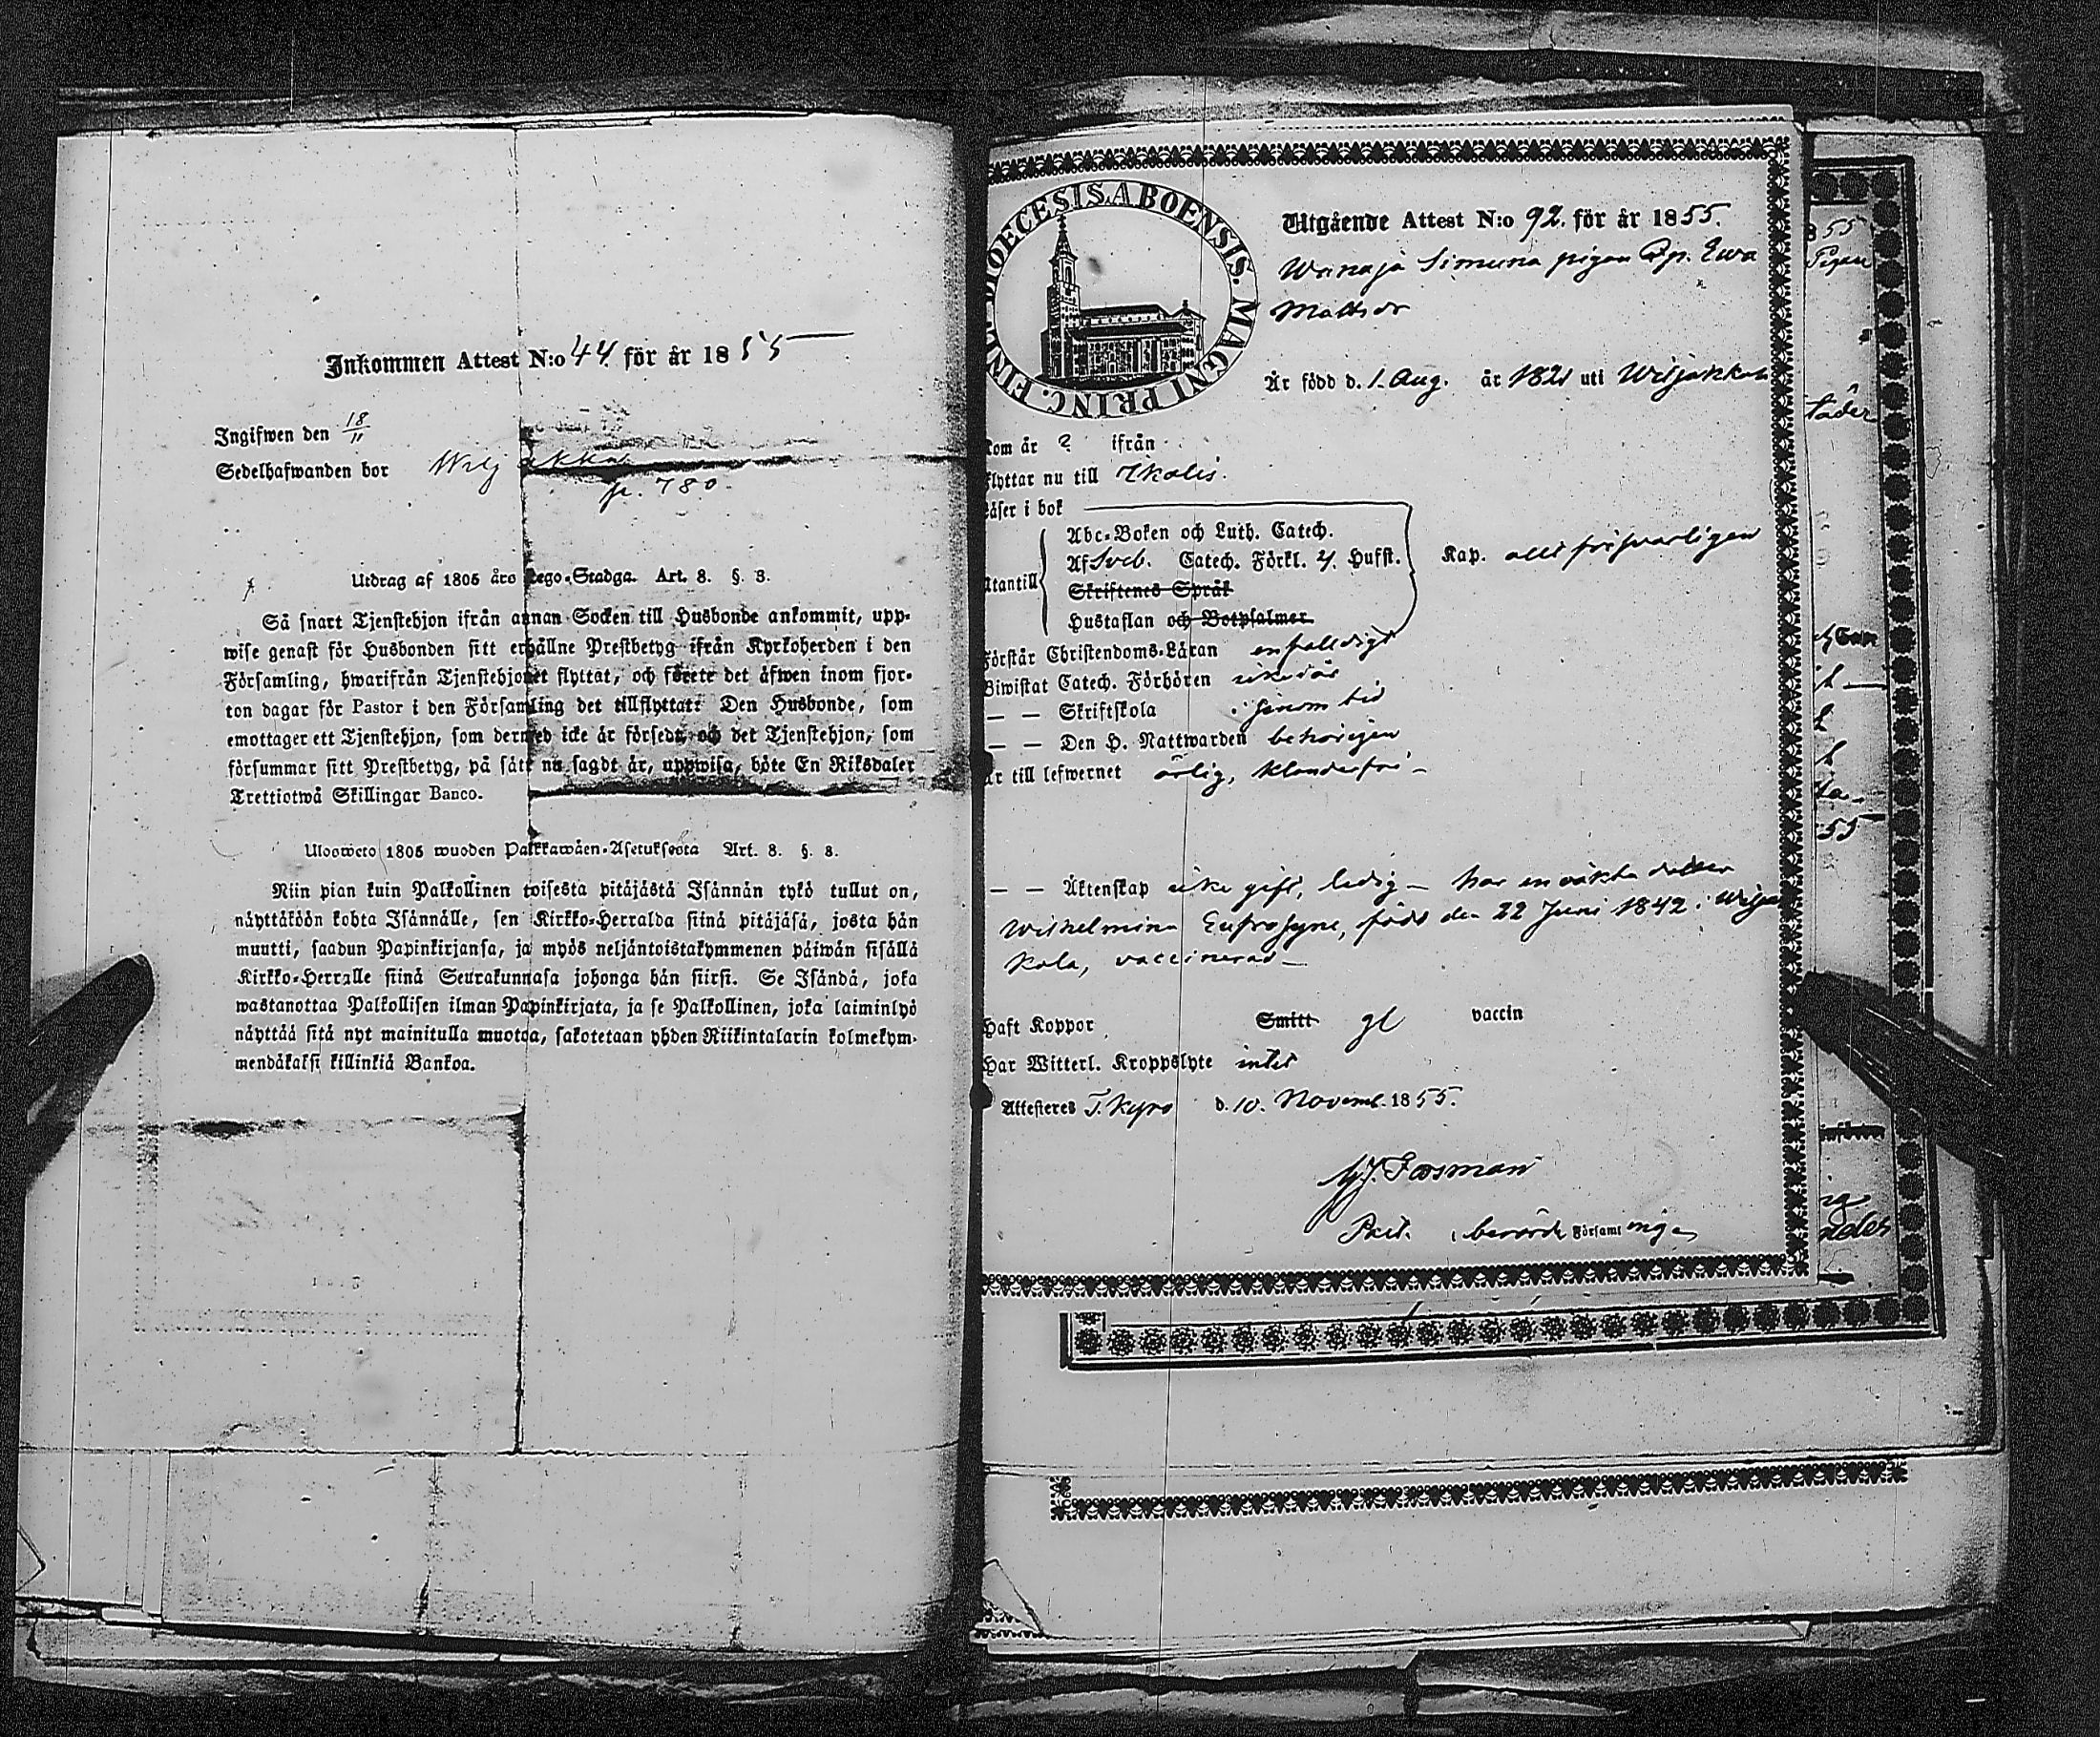 Inkommen Attest N:o 44. för år 1855
Ingifwen den 18/11
Sedelhafwanden bor Wiljakkala
p. 780.
Utdrag af 1805 års Lego-Stadga. Art. 8. §. 8.
Så snart Tjenstehjon ifrån annan Socken till Husbonde ankommit, upp-
wise genast för Husbonden sitt erhållne Prestbetyg ifrån Kyrkoherden i den
Församling, hwarifrån Tjenstehjonet flyttat, och förete det äfwen inom fjor-
ton dagar för Pastor i den Församling det tillflyttat: Den Husbonde, som
emottager ett Tjenstehjon, som dermed icke är försedt, och det Tjenstehjon, som
försummar sitt Prestbetyg, på sätt nu sagdt är, uppwisa, böte En Riksdaler
Trettiotwå Skillingar Banco.
Ulosweto 1805 wuoden Palkkawäen-Asetuksesta Art. 8. §. 8.
Niin pian kuin Palkollinen toisesta pitäjästä Isännän tykö tullut on,
näyttäköön kohta Isännälle, sen Kirkko-Herralda siinä pitäjäsä, josta hän
muutti, saadun Papinkirjansa, ja myös neljäntoistakymmenen päiwän sisällä
Kirkko-Herralle siinä Seurakunnasa johonga hän siirsi. Se Isändä, joka
wastanottaa Palkollisen ilman Papinkirjata, ja se Palkollinen, joka laiminlyö
näyttää sitä nyt mainitulla muotoa, sakotetaan yhden Riikintalarin kolmekym-
mendäkaksi killinkiä Bankoa.
DIOECESIS ABOENSIS. MAGNI PRINC. FINL.
Utgående Attest N:o 92. för år 1855.
Simuna pigan Ewa
Mattsdr
Är född d. 1. Aug. år 1821 uti Wiljakkala
kom år ? ifrån
flyttar nu till Ikalis.
Läser i bok
Abc-Boken och Luth. Catech.
Af Sveb. Catech. Förkl. 4. Hufst.
Kap. allt försvarligen
Utantill
Skriftenes Språk
Hustaflan och Botpsalmer
Förstår Christendoms-Läran enfalldigt
Biwistat Catech. Förhören
— — Skriftskola i sinom tid
— — Den H. Nattwarden behörigen
Är till lefwernet ärlig, klanderfri —
— — Äktenskap icke gift, ledig — har en oäkta dotter
Wilhelmina Eufrosyne, född den 22 Juni 1842 i Wiljak
kala, vaccinerad —
Haft Koppor Smitt gl vaccin
Har Witterl. Kroppslyte intet
Attesteres T. Kyro d. 10. Novemb. 1855.
Forsman
Past. i berörde Församlingen
55
Pigan